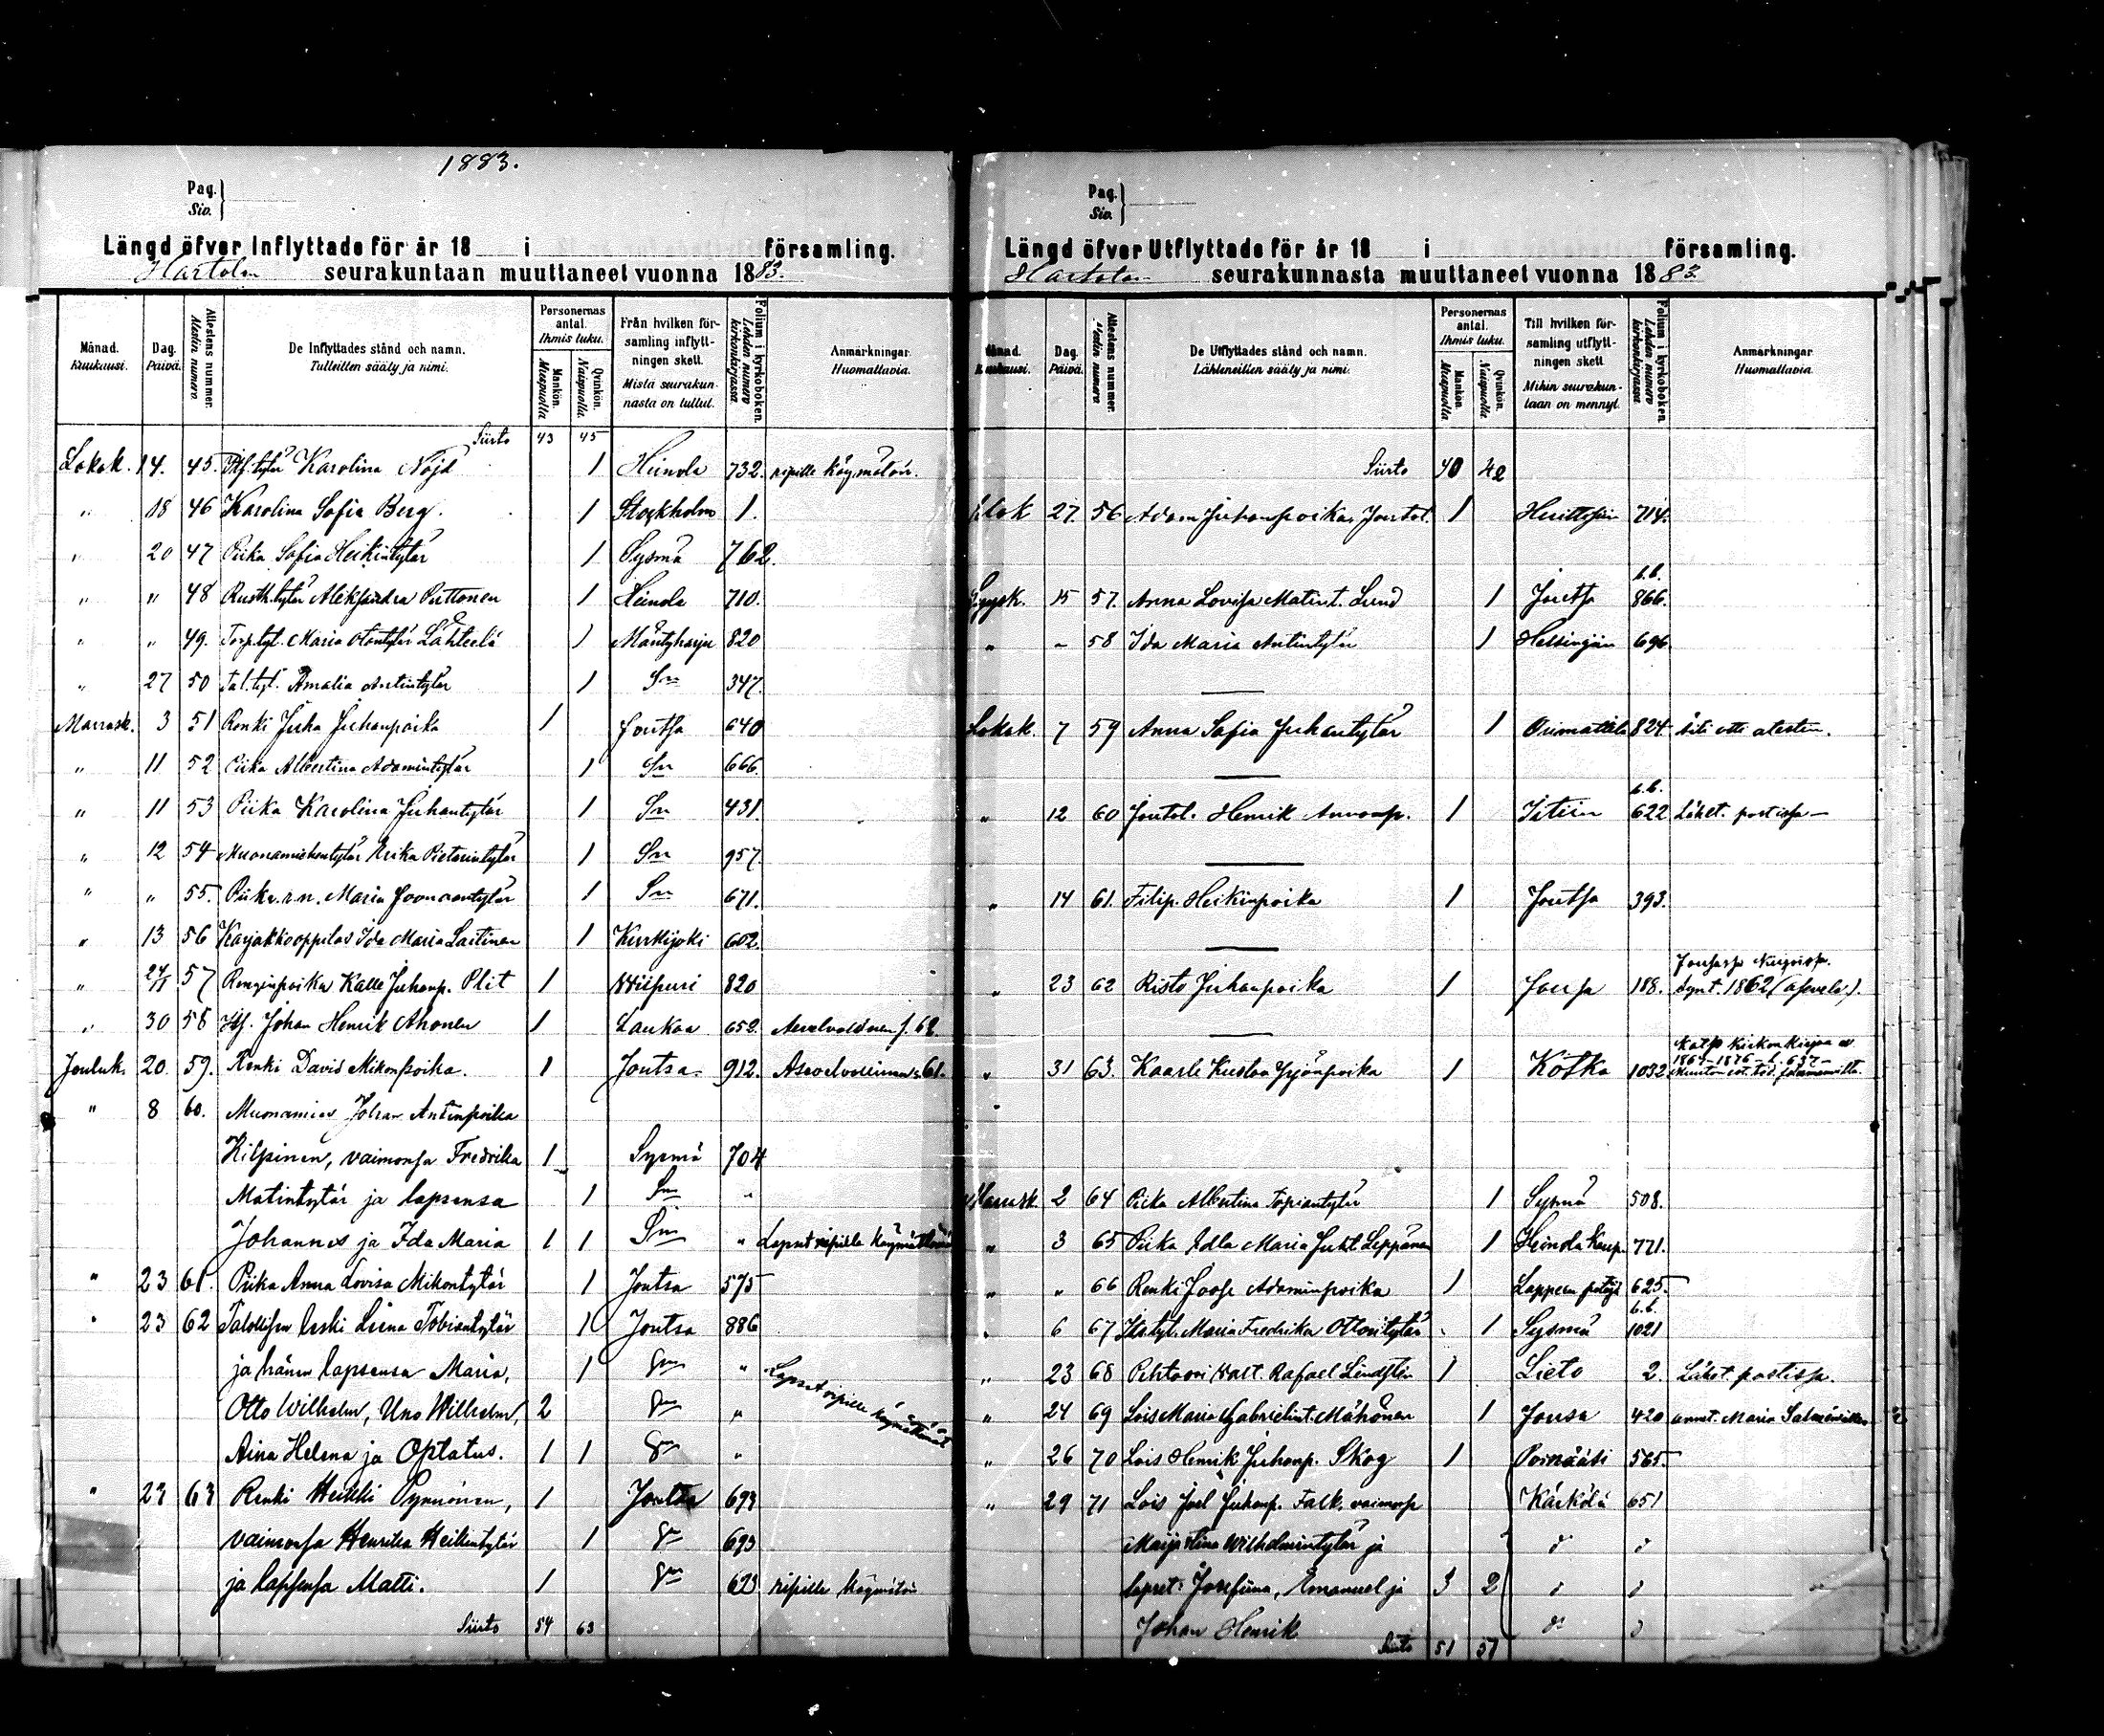 1883.
Pag.
Siv.
Längd öfver Inflyttade för år 18 i församling.
Hartolan seurakuntaan muuttaneet vuonna 1883.
Månad. Kuukausi.
Dag. Päivä.
Attestens nummer. Alestin numero
De Inflyttades stånd och namn. Tulleitten sääty ja nimi.
Personernas antal. Ihmis luku.
Mankön. Miespuolia
Qvinkön. Naispuolia.
Från hvilken församling inflyttningen skett. Mistä seurakunnasta on tullut.
Folium i kyrkoboken Lehden numero kirkonkirjassa.
Anmärkningar. Huomattavia.
Siirto 43 45
Lokak. 14. 45. tytär Karolina Nöjd 1 Heinola 732. ripille käymätöin.
" 18 46 Karolina Sofia Berg. 1 Stockholm 1.
" 20 47 Piika Sofia Heikintytär 1 Sysmä 762.
" " 48 Rusth.tytär Aleksandra Puttonen 1 Heinola 710.
" " 49. Torp.tyt. Maria Otontytär Lähteelä 1 Mäntyharju 820
" 27 50 Tal.tyt. Amalia Antintytär 1 Sn 347.
Marrask. 3 51 Renki Juha Juhanpoika 1 Joutsa 640
" 11 52 Piika Albertina Adamintytär 1 Sn 666.
" 11 53 Piika Karolina Juhantytär 1 Sn 431.
" 12 54 Muonamiehentytär Erika Pietarintytär 1 Sn 957.
" " 55. Piika a.n. Maria Joonaantytär 1 Sn 671.
" 13 56 Karjakkooppilas Ida Maria Laitinen 1 Kurkijoki 602.
" 24/11 57 Renginpoika Kalle Juhanp. Plit 1 Wiipuri 820
" 30 58 Itf. Johan Henrik Ahonen 1 Laukaa 652. Asevelvollinen s. 62
Jouluk. 20. 59. Renki David Mikonpoika. 1 Joutsa. 912. Asevelvollinen s. 61.
" 8 60. Muonamies Johan Antinpoika
Kilpinen, vaimonsa Fredrika 1 Sysmä 704
Matintytär ja lapsensa 1 Sn "
Johannes ja Ida Maria 1 1 Sn " Lapset ripille käymättömät
" 23 61. Piika Anna Lovisa Mikontytär 1 Joutsa 575
" 23 62 Talollisen leski Liina Tobiantytär 1 Joutsa 886
ja hänen lapsensa Maria, 1 Sn " Lapset ripille käymättömät
Otto Wilhelm, Uno Wilhelm, 2 Sn "
Aina Helena ja Optatus. 1 1 Sn "
" 23 63 Renki Heikki Pynnönen, 1 Joutsa 693
vaimonsa Henrika Heikintytär 1 Sn 693
ja lapsensa Matti. 1 Sn 693 ripille käymätöin
Siirto 54 63
Pag.
Siv.
Längd öfver Utflyttade för år 18 i församling.
Hartolan seurakunnasta muuttaneet vuonna 1883
Månad. Kuukausi.
Dag. Päivä.
Attestens nummer. Alestin numero
De Utflyttades stånd och namn. Lähteneitten sääty ja nimi.
Personernas antal. Ihmis luku.
Mankön. Miespuolia
Qvinkön. Naispuolia
Till hvilken församling utflyttningen skett. Mihin seurakuntaan on mennyt.
Folium i kyrkoboken Lehden numero kirkonkirjassa.
Anmärkningar. Huomattavia.
Siirto 40 42
Elok 27. 56 Adam Juhanpoika Joutol. 1 714.
Syysk. 15 57. Anna Lovisa Matint. Lund 1 Joutsa 866.
" " 58 Ida Maria Antintytär 1 Helsingin 696
Lokak. 7 59 Anna Sofia Juhantytär 1 Orimattila 824. äiti otti atestin.
" 12 60 Joutol. Henrik Aaronp. 1 Iitiin 622 Lähet. postissa
" 14 61. Filip. Heikinpoika 1 Joutsa 393.
" 23 62 Risto Juhanpoika 1 Joutsa 188. synt. 1862 (asevelv.).
" 31 63. Kaarle Kustaa Yrjönpoika 1 Kotka 1032 Katso Kirkon Kirjaa
Marrask. 2 64 Piika Albertina Topiantytär 1 Sysmä 508.
" 3 65 Piika Adla Maria Juht. Leppänen 1 Heinola Kaup. 771.
" " 66 Renki Joose Adaminpoika 1 Lappeen 625.
" 6 67 Maria Fredrika Ottontytär 1 Sysmä 1021
" 23 68 Pehtoori Walt. Rafael Lindsten 1 Lieto 2. Lähet. postissa.
" 24 69 Lois Maria Gabrielint. Mähönen 1 Joutsa 420 annet. Maria
" 26 70 Lois Henrik Juhanp. Skog 1 565.
" 29 71 Lois Joel Juhanp. Falk, vaimonsa Kärkölä 651
Maija Stina Wilhelmintytär ja
lapset: Josefiina, Emanuel ja 3 2
Johan Henrik
Siirto 51 51